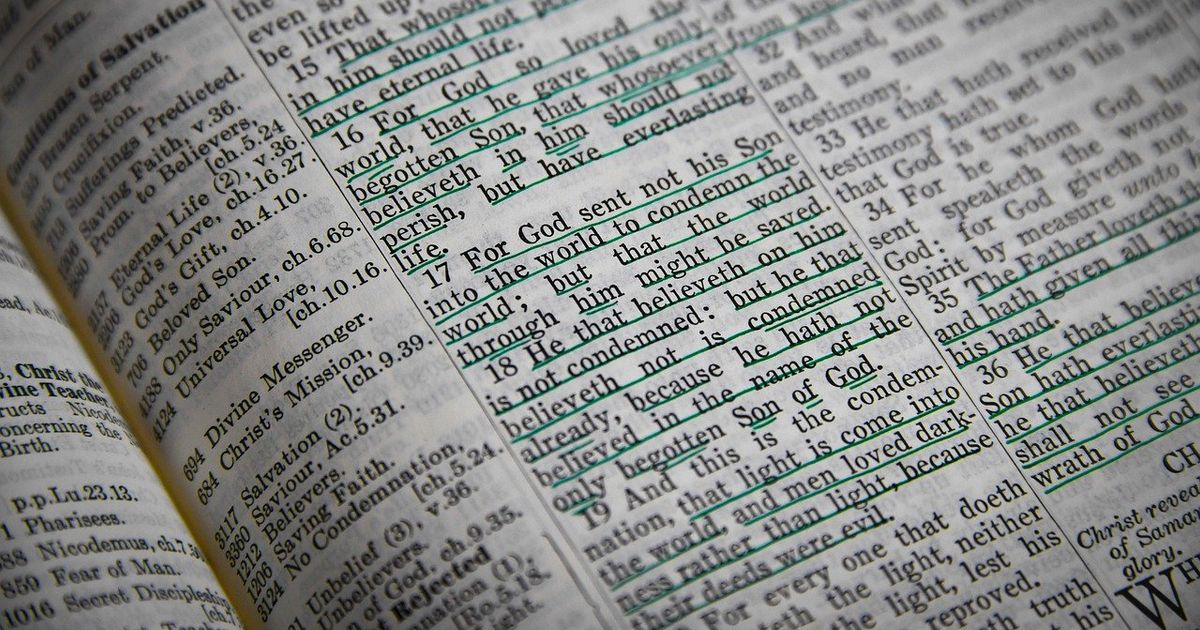 ead, Ac.
Christ the
vine Teacher
ructs Nicode
oncerning the
Birth.
p.p.Lu.23.13.
1 Pharisees.
Nicodemus, ch.7
859 Fear of Man.
1016 Secret Discipleship
[ch.
of Man.
of Salvation
Brazen Serpent.
Crucifixion.
Sufferings Predicted.
Saving Faith, v.36.
Prom. to Believers,
[ch.5.24
Eternal Life (2), v.36
God's Love, ch.16.27.
God's Gift, ch.4.10.
706 Beloved Son.
4188 Only Saviour, ch.6.68.
4124 Universal Love,
[ch.10.16.
694 Divine Messenger.
684 Christ's Mission,
[ch.9.39.
3117 Salvation (2),
3360 Saviour, Ac.5.31.
1212 Believers.
1206 Saving Faith.
3124 No Condemnation,
[ch.5.24.
Unbelief (3), v.36.
Unbelievers.
of God, ch.9.35.
Rejected
(1),
[Ro.5.18.
even so
be lifted up
15 That whosoe
in him should not pe
have eternal life.
16 For God so loved the
world, that he gave his only
begotten Son, that whosoever
believeth in him should not
perish, but have everlasting
life.
17 For God sent not his Son
into the world to condemn the
world; but that the world
through him might be saved.
18 He that believeth on him
is not condemned: but he that
believeth not is condemned
already, because he hath not
believed in the name of the
only begotten Son of God.
19 And this is the condem-
nation, that light is come into
the world, and men loved dark-
ness rather than light, because
their deeds were evil.
For every one that doeth
the light, neither
the light, lest his
reproved.
truth
his
from
32 And what
and heard, that
and no man receiv
testimony.
33 He that hath received his
testimony hath set to his seal
that God is true.
34 For he whom God hath
sent speaketh the words
God: for God giveth not
Spirit by measure unto
35 The Father loveth the
and hath given all thin
his hand.
36 He that believe
Son hath everlasti
he that believeth
shall not see
wrath of God
CH
Christ revea
of Samar
glory.
WH